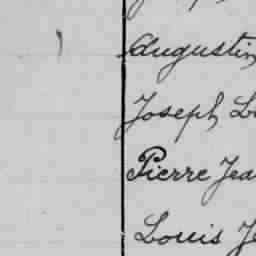 Augustin
Joseph
Pierre Jea
Louis Je